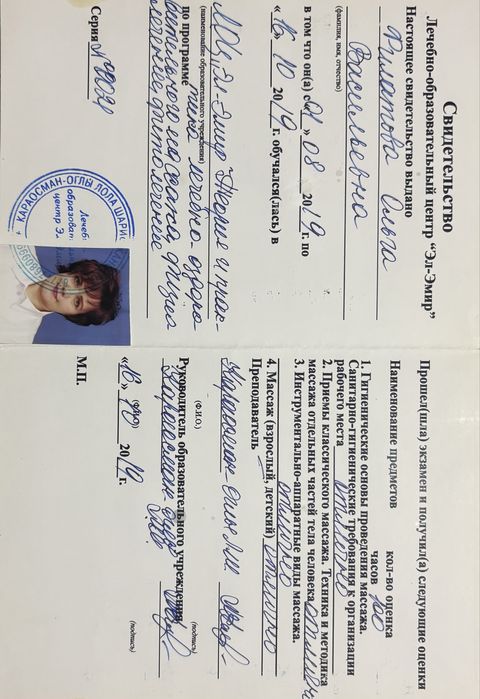 Свидетельство
Лечебно-образовательный центр "Эл-Эмир"
Настоящее свидетельство выдано
Филатова Ольга
Васильевна
(фамилия, имя, отчество)
в том что он(а) с «01» 08 2019 г. по
«16» 10 2019 г. обучался(лась) в
ЛОЦ „Эл-Эмир" Теория и прак-
(наименование образовательного учреждения)
тика лечебно-оздоро-
по программе
вительного массажа, физио
лечение, фитолечение
Серия №
КАРАОСМАН-ОГЛЫ ЛОЛА ШАРИ
Лечебно
образоват
центр Э
Прошел(шла) экзамен и получил(а) следующие оценки
Наименование предметов кол-во оценка
часов
1. Гигиенические основы проведения массажа.
Санитарно-гигиенические требования к организации
рабочего места отлично
2. Приемы классического массажа. Техника и методика
массажа отдельных частей тела человека отлично
3. Инструментально-аппаратные виды массажа.
отлично
4. Массаж (взрослый, детский) отлично
Преподаватель
Караосман-Оглы Л.Ш.
(Ф.И.О.) (подпись)
Руководитель образовательного учреждения
Караосман-Оглы
(Ф.И.О.) (подпись)
«16» 10 2019 г.
М.П.